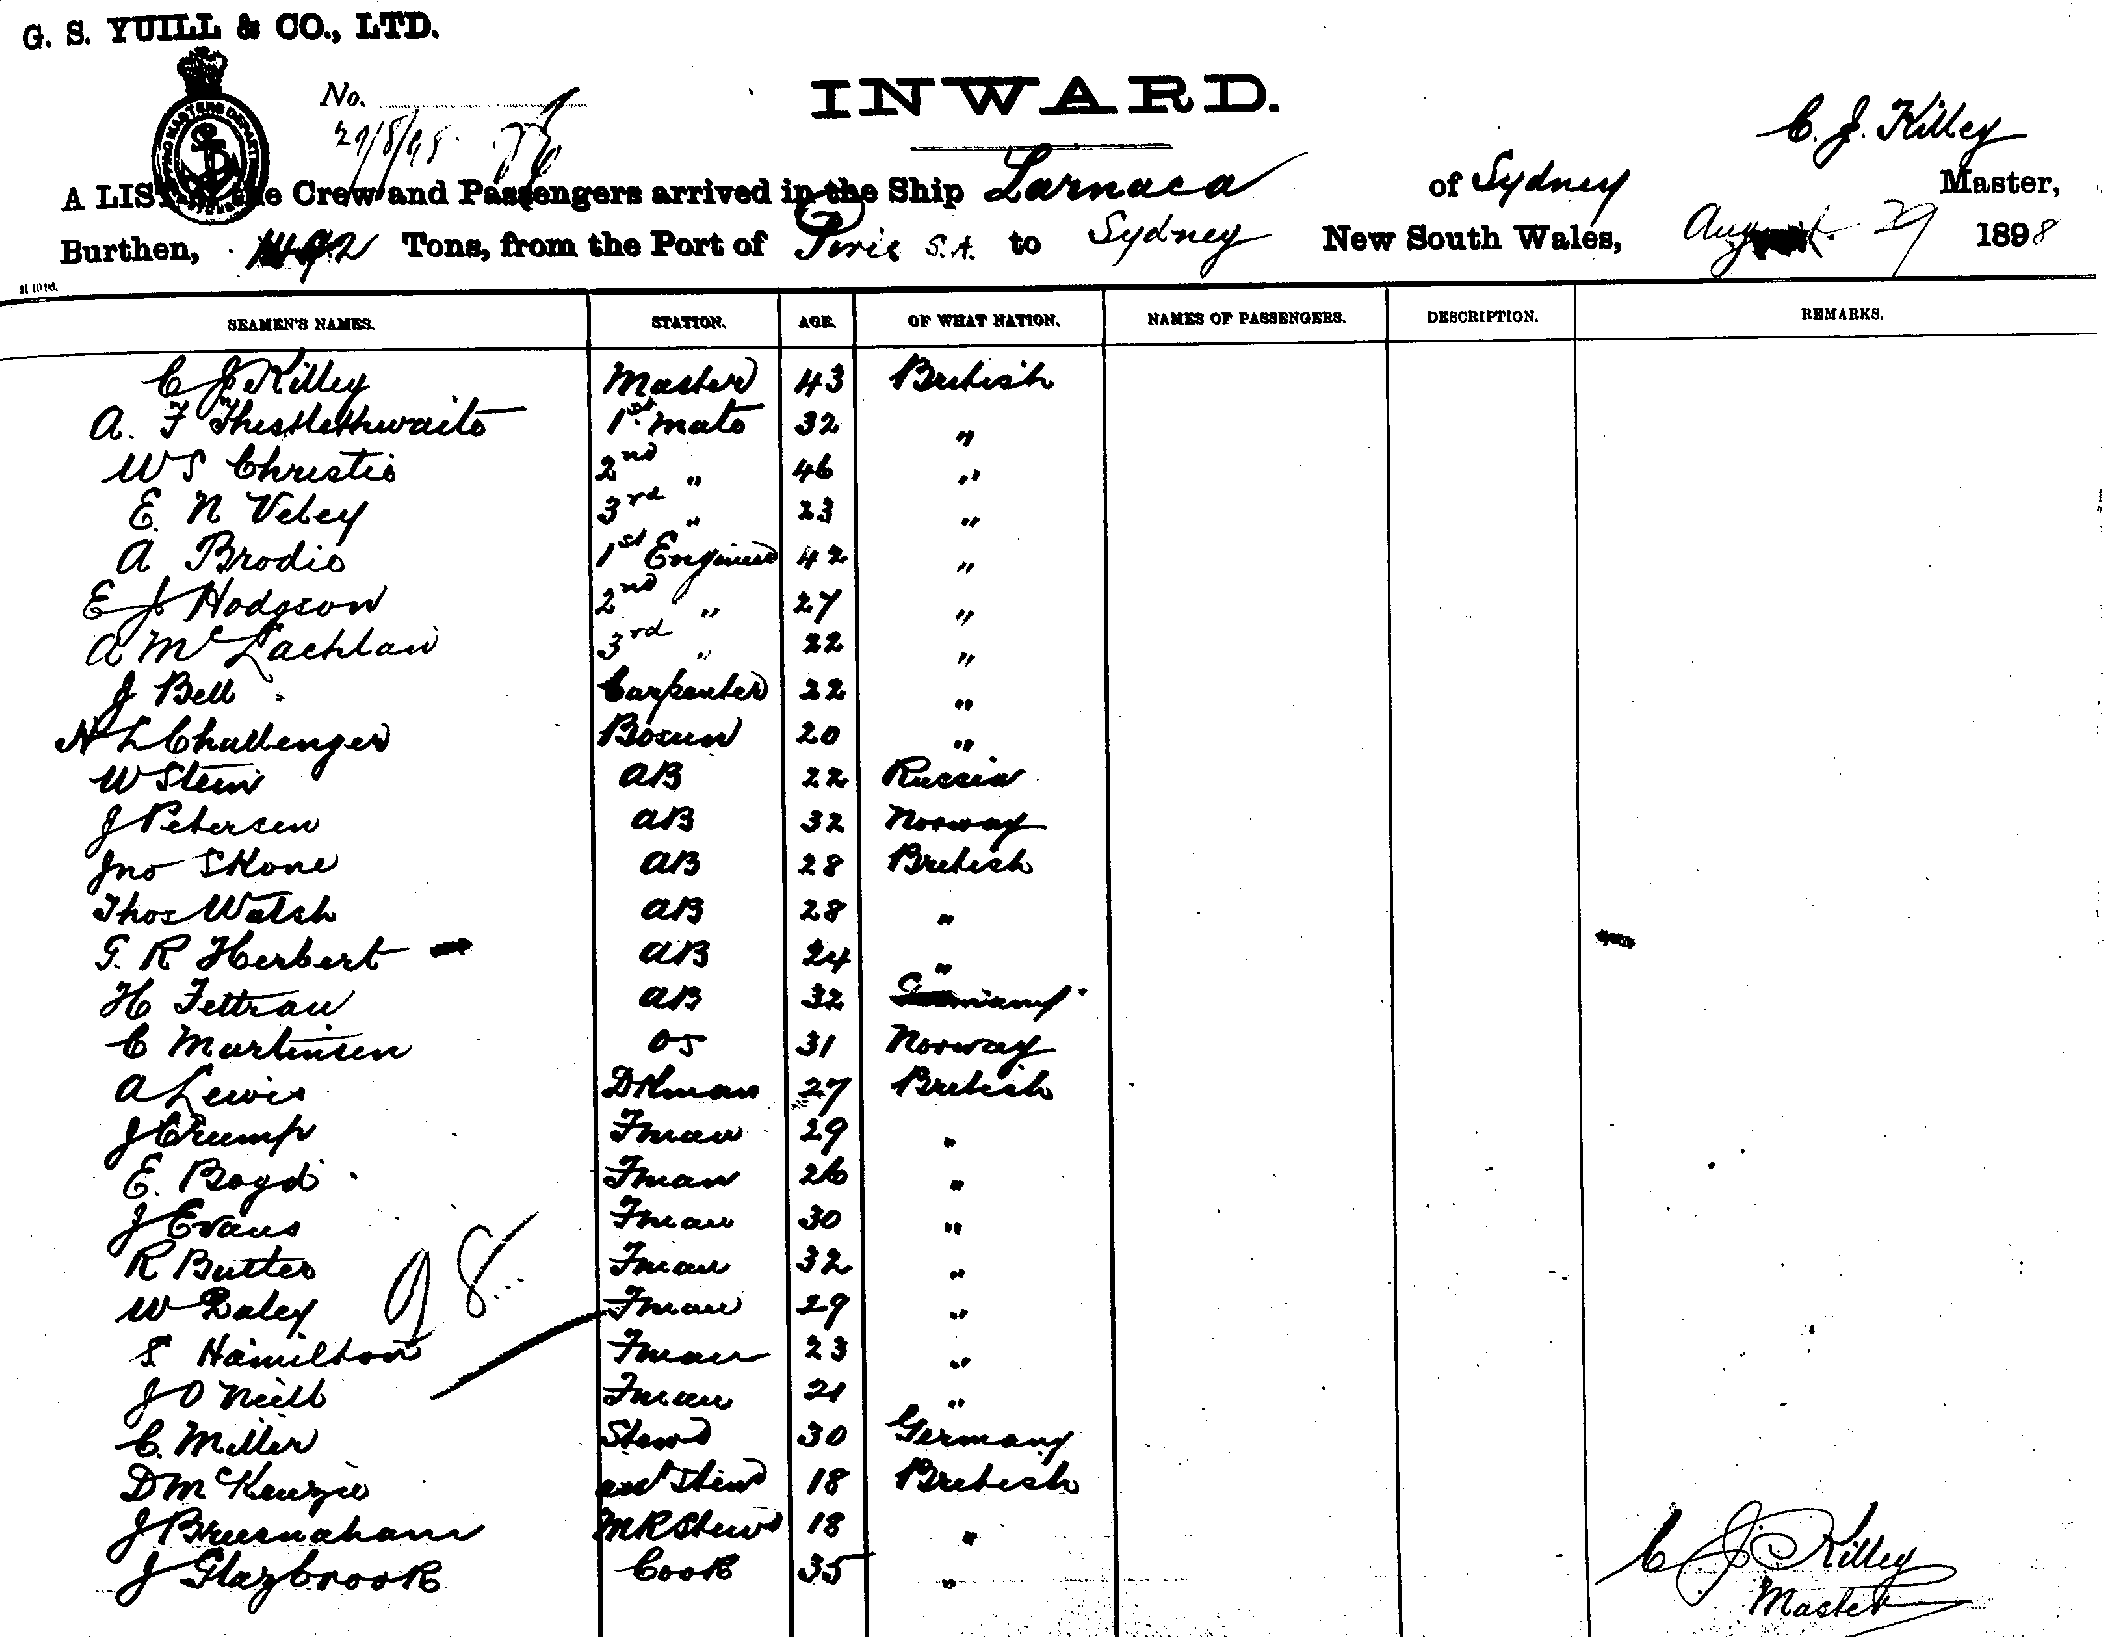 G. S. YUILL & CO., LTD.
No.
29/8/98
INWARD.
C. J. Killey
A LIST of the Crew and Passengers arrived in the Ship Larnaca of Sydney Master,
Burthen, Tons, from the Port of Pirie S.A. to Sydney New South Wales, August 29 1898
SEAMEN'S NAMES. STATION. AGE. OF WHAT NATION. NAMES OF PASSENGERS. DESCRIPTION. REMARKS.
C J Killey Master 43 British
A. F Thistlethwaite 1st Mate 32 "
W S Christie 2nd " 46 "
E. N Vebey 3rd " 23 "
A Brodie 1st Engineer 42 "
E J Hodgson 2nd " 27 "
A McLachlan 3rd " 22 "
J Bell Carpenter 22 "
N L Challenger Bosun 20 "
W Stein AB 22 Russia
J Petersen AB 32 Norway
Jno Skone AB 28 British
Thos Walsh AB 28 "
G. R Herbert AB 24 "
H Tettrau AB 32 Germany
C Martinsen OS 31 Norway
A Lewis DKman 27 British
J Crump Fman 29 "
E. Boyd Fman 26 "
J Evans Fman 30 "
R Butter Fman 32 "
W Daley Fman 29 "
S Hamilton Fman 23 "
J O Neill Fman 21 "
98
C. Miller Stewd 30 Germany
D McKenzie Stewd 18 British
J Bresnaham MR Stewd 18 "
J Glazbrook Cook 35 "
C J Killey
Master